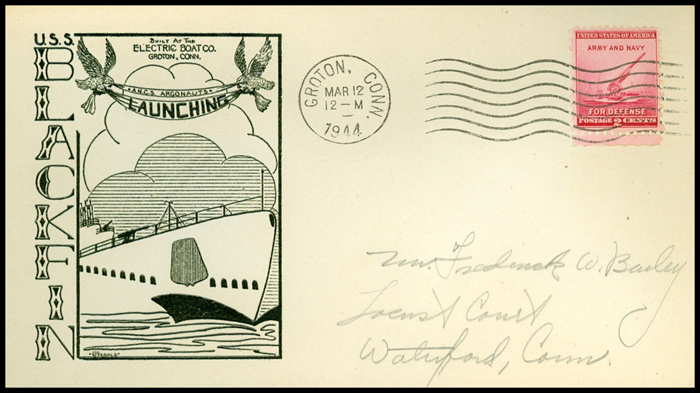 U.S.S.
BLACKFIN
BUILT AT THE
ELECTRIC BOAT CO.
GROTON, CONN.
A.N.C.S. ARGONAUTS
LAUNCHING
GROTON, CONN.
MAR 12
12-M
1944
UNITED STATES OF AMERICA
ARMY AND NAVY
FOR DEFENSE
POSTAGE 2 CENTS
Mr. Frederick W. Bailey
Locust Court
Waterford, Conn.